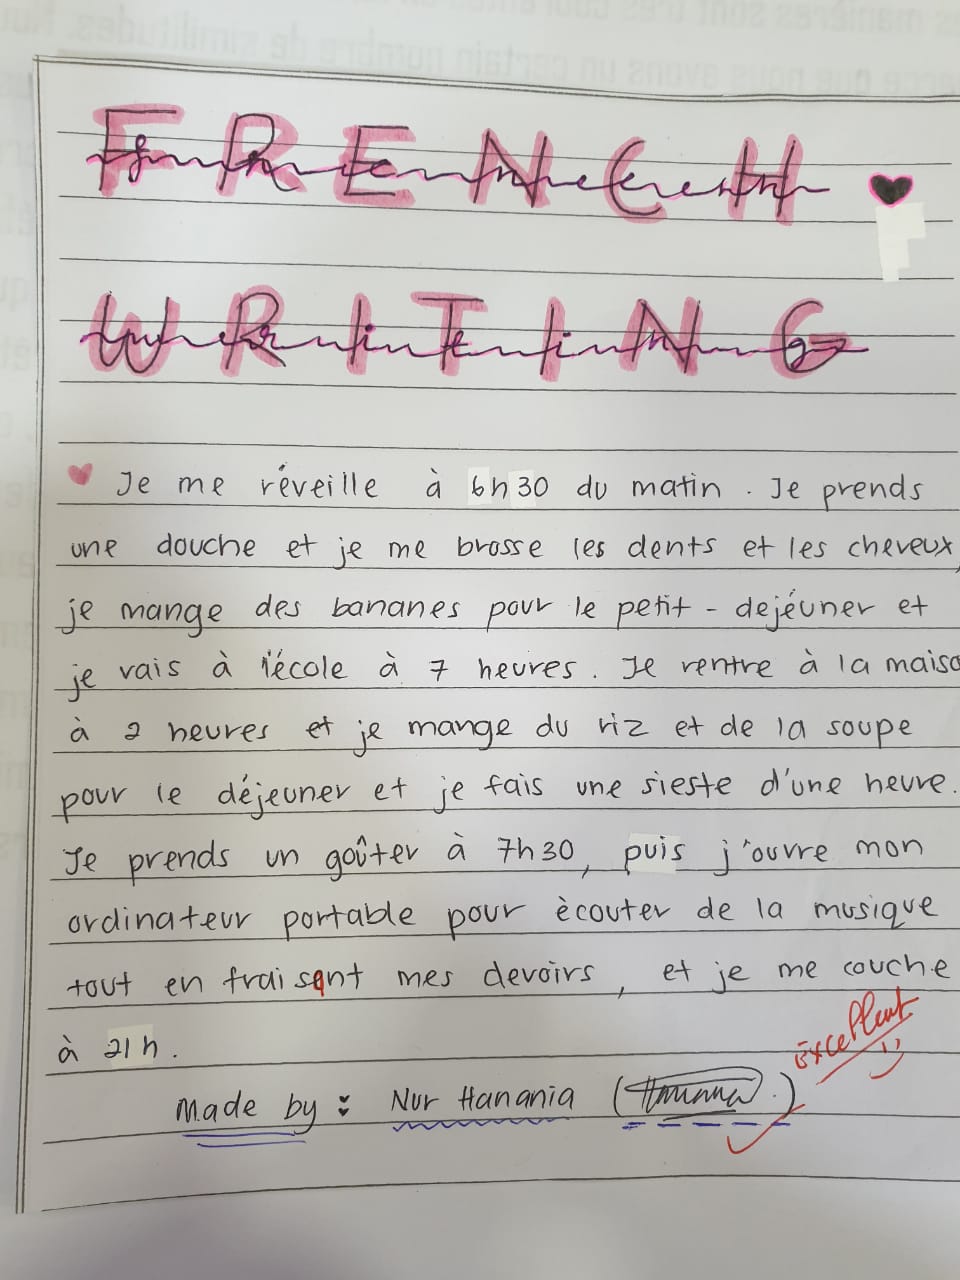 FRENCH
WRITING
Je me réveille à 6h30 du matin. Je prends
une douche et je me brosse les dents et les cheveux,
je mange des bananes pour le petit-dejéuner et
je vais à l'école à 7 heures. Je rentre à la maiso
à 2 heures et je mange du riz et de la soupe
pour le déjeuner et je fais une sieste d'une heure.
Je prends un goûter à 7h30, puis j'ouvre mon
ordinateur portable pour ècouter de la musique
tout en fraisant mes devoirs, et je me couche
à 21h.
Excellent
Made by: Nur Hanania